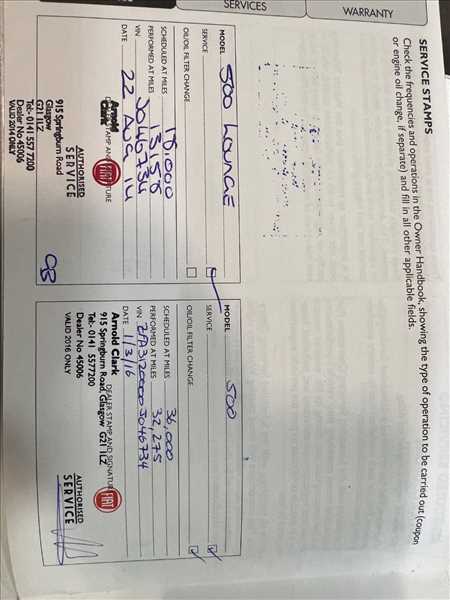 SERVICES
WARRANTY
SERVICE STAMPS
Check the frequencies and operations in the Owner Handbook, showing the type of operation to be carried out (coupon
or engine oil change, if separate) and fill in all other applicable fields.
MODEL 500 LOUNGE
SERVICE
OIL/OIL FILTER CHANGE
SCHEDULED AT MILES 18,000
PERFORMED AT MILES
VIN J046734
DATE 22 AUG 14
DEALER STAMP AND SIGNATURE
Arnold
Clark
FIAT
AUTHORISED
SERVICE
915 Springburn Road
Glasgow
G21 1LZ
Tel:- 0141 557 7200
Dealer No 45006
VALID 2014 ONLY
MODEL 500
SERVICE
OIL/OIL FILTER CHANGE
SCHEDULED AT MILES 36,000
PERFORMED AT MILES 32,275
VIN ZFA3120000J046734
DATE 1/3/16
DEALER STAMP AND SIGNATURE
Arnold Clark
915 Springburn Road, Glasgow G21 1LZ
Tel:- 0141 5577200
Dealer No 45006
VALID 2016 ONLY
FIAT
AUTHORISED
SERVICE